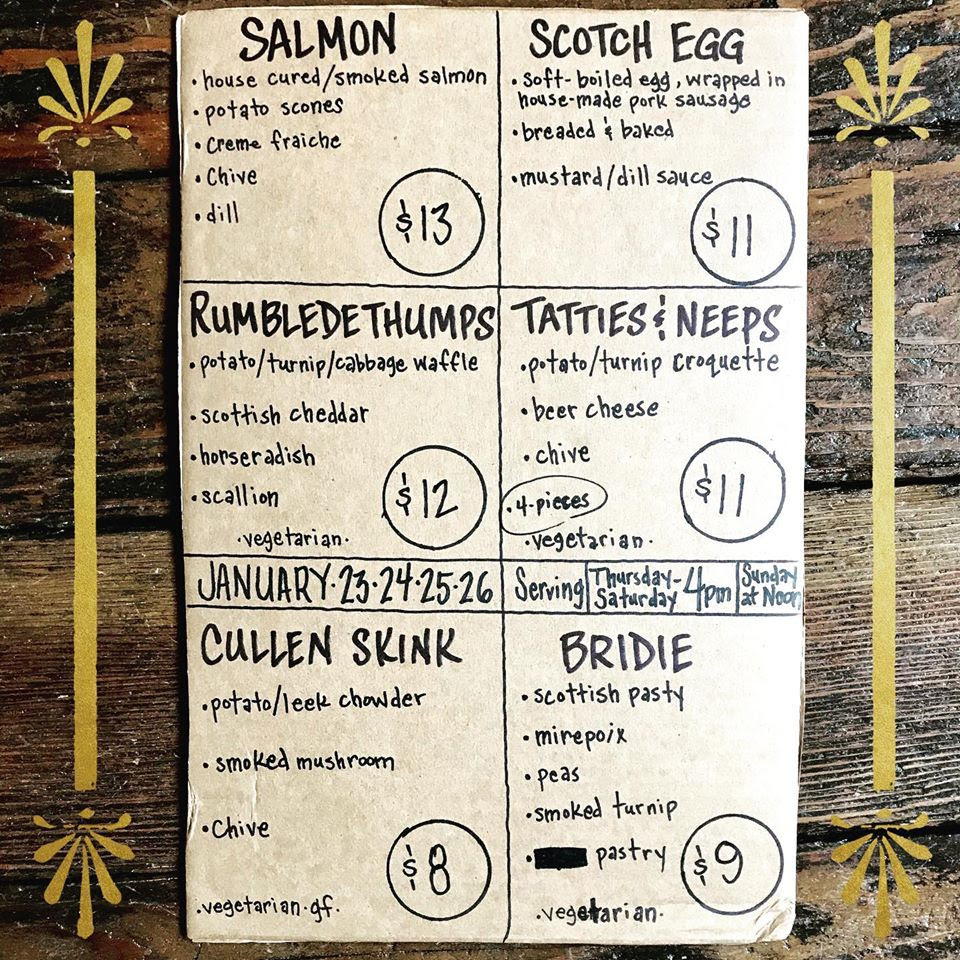 SALMON
• house cured/smoked salmon
• potato scones
• creme fraiche
• Chive
• dill
$13
SCOTCH EGG
• soft-boiled egg, wrapped in
house-made pork sausage
• breaded & baked
• mustard/dill sauce
$11
RUMBLEDETHUMPS
• potato/turnip/cabbage waffle
• scottish cheddar
• horseradish
• scallion
$12
• vegetarian •
TATTIES & NEEPS
• potato/turnip croquette
• beer cheese
• chive
• 4-pieces
$11
• vegetarian •
JANUARY • 23 • 24 • 25 • 26
Serving Thursday-Saturday 4pm Sunday at Noon
CULLEN SKINK
• potato/leek chowder
• smoked mushroom
• Chive
$8
• vegetarian • gf •
BRIDIE
• scottish pasty
• mirepoix
• peas
• smoked turnip
• pastry
$9
• vegetarian •